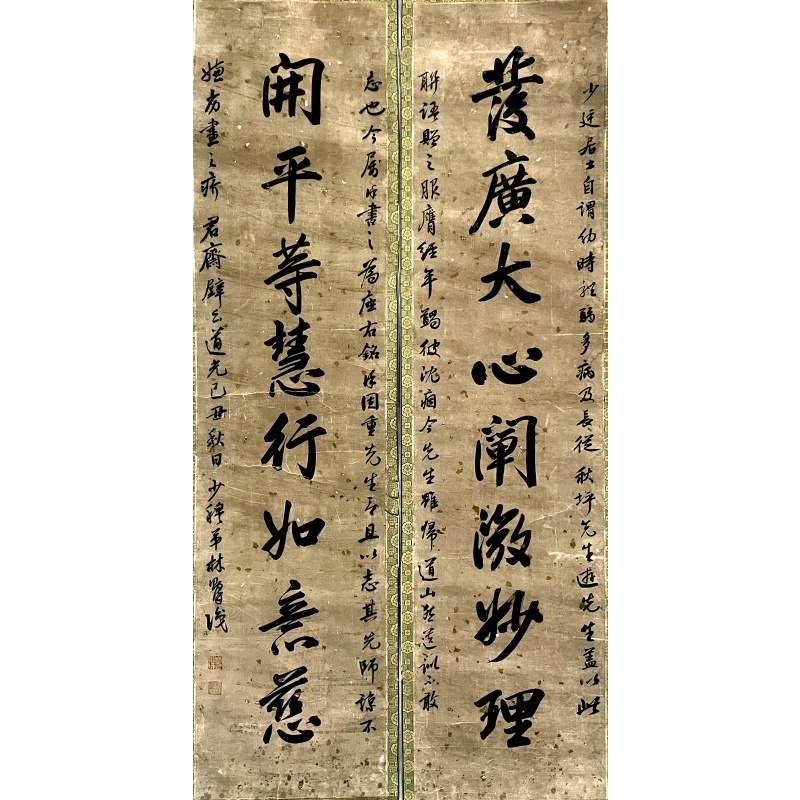 少廷居士自謂幼時羸弱多病及長從秋坪先生遊先生蓋以此
發廣大心闡微妙理
聯語贈之服膺經年蠲彼沈痼今先生雖帰道山然遺訓不敢
忘也今屬余書之為座右銘余因重先生言且以志其先師諒不
開平等慧行如意慈
嫌方畫之疥君齋壁云道光己丑秋日少穆弟林則徐